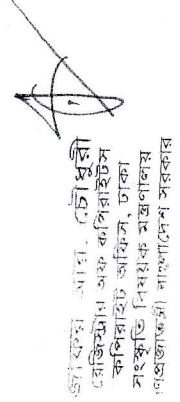 আর. চৌধুরী
রেজিস্ট্রার অফ কপিরাইটস
কপিরাইট অফিস, ঢাকা
সংস্কৃতি বিষয়ক মন্ত্রণালয়
গণপ্রজাতন্ত্রী বাংলাদেশ সরকার